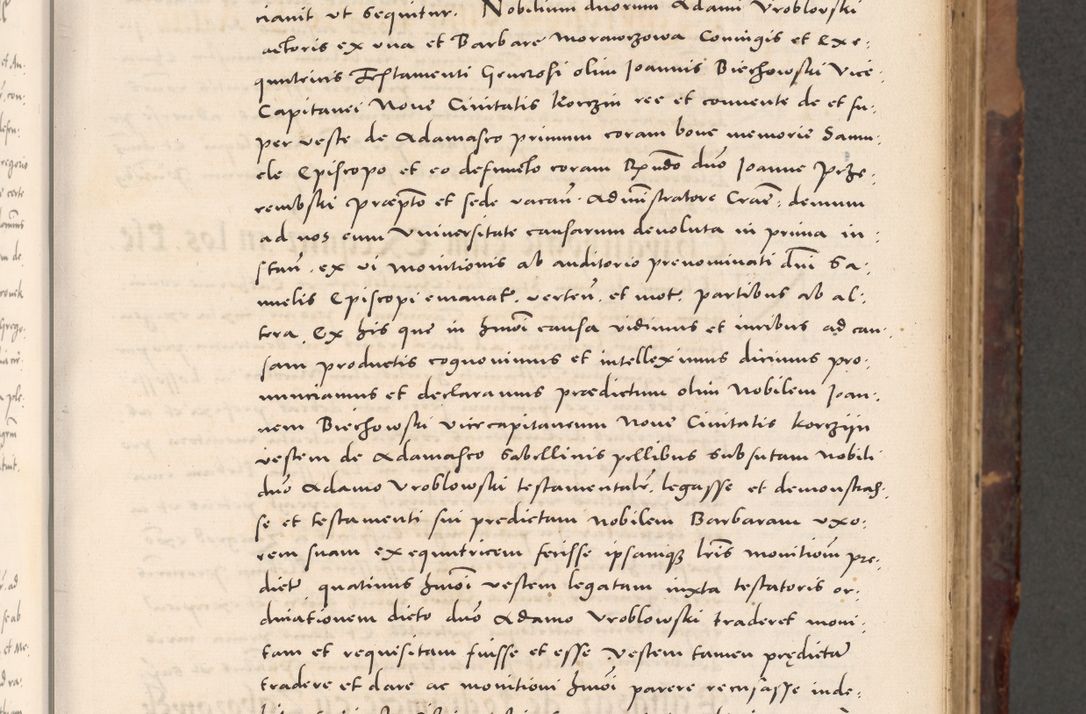 ciavit ut sequitur. Nobilium duorum Adami Vroblovski
actoris ex una et Barbare Moraworzowa Coniugis et Exe:
quutricis Testamenti Generosi olim Joannis Biechowski Vice
Capitanei Nove Civitatis Korczin ree et convente de et su:
per veste de Adamasco primum coram bone memorie Samu:
ele Episcopo et eo defuncto coram Rndo dno Joanne Prze:
rembski Praepto et sede vacan. Administratore Craen: demum
ad nos cum Universitate causarum devoluta in prima in:
stan. ex vi monitionis ab auditorio prenominati dni Sa:
muelis Episcopi emanat. verten. et mot. partibus ab al:
tera. Ex his que in hmoi causa vidimus et iuribus ad cau:
sam productis cognovimus et intelleximus dicimus pro:
nunciamus et declaramus praedictum olim Nobilem Joan:
nem Biechowski Vicecapitaneum Nove Civitatis Korczijn
vestem de Adamasco Sabellinis pellibus subsutam Nobili
dno Adamo Vroblowski testamentaler. legasse et demonstras:
se et testamenti sui predictam Nobilem Barbaram uxo:
rem suam exequutricem fecisse ipsamque lris monitioum pre:
dict. quatinus hmoi vestem legatam iuxta testatoris or:
dinationem dicto dno Adamo Vroblowski traderet moni:
tam et requisitam fuisse et esse vestem tamen prędictam
tradere et dare ac monitioni hmoi parere recusasse inde: